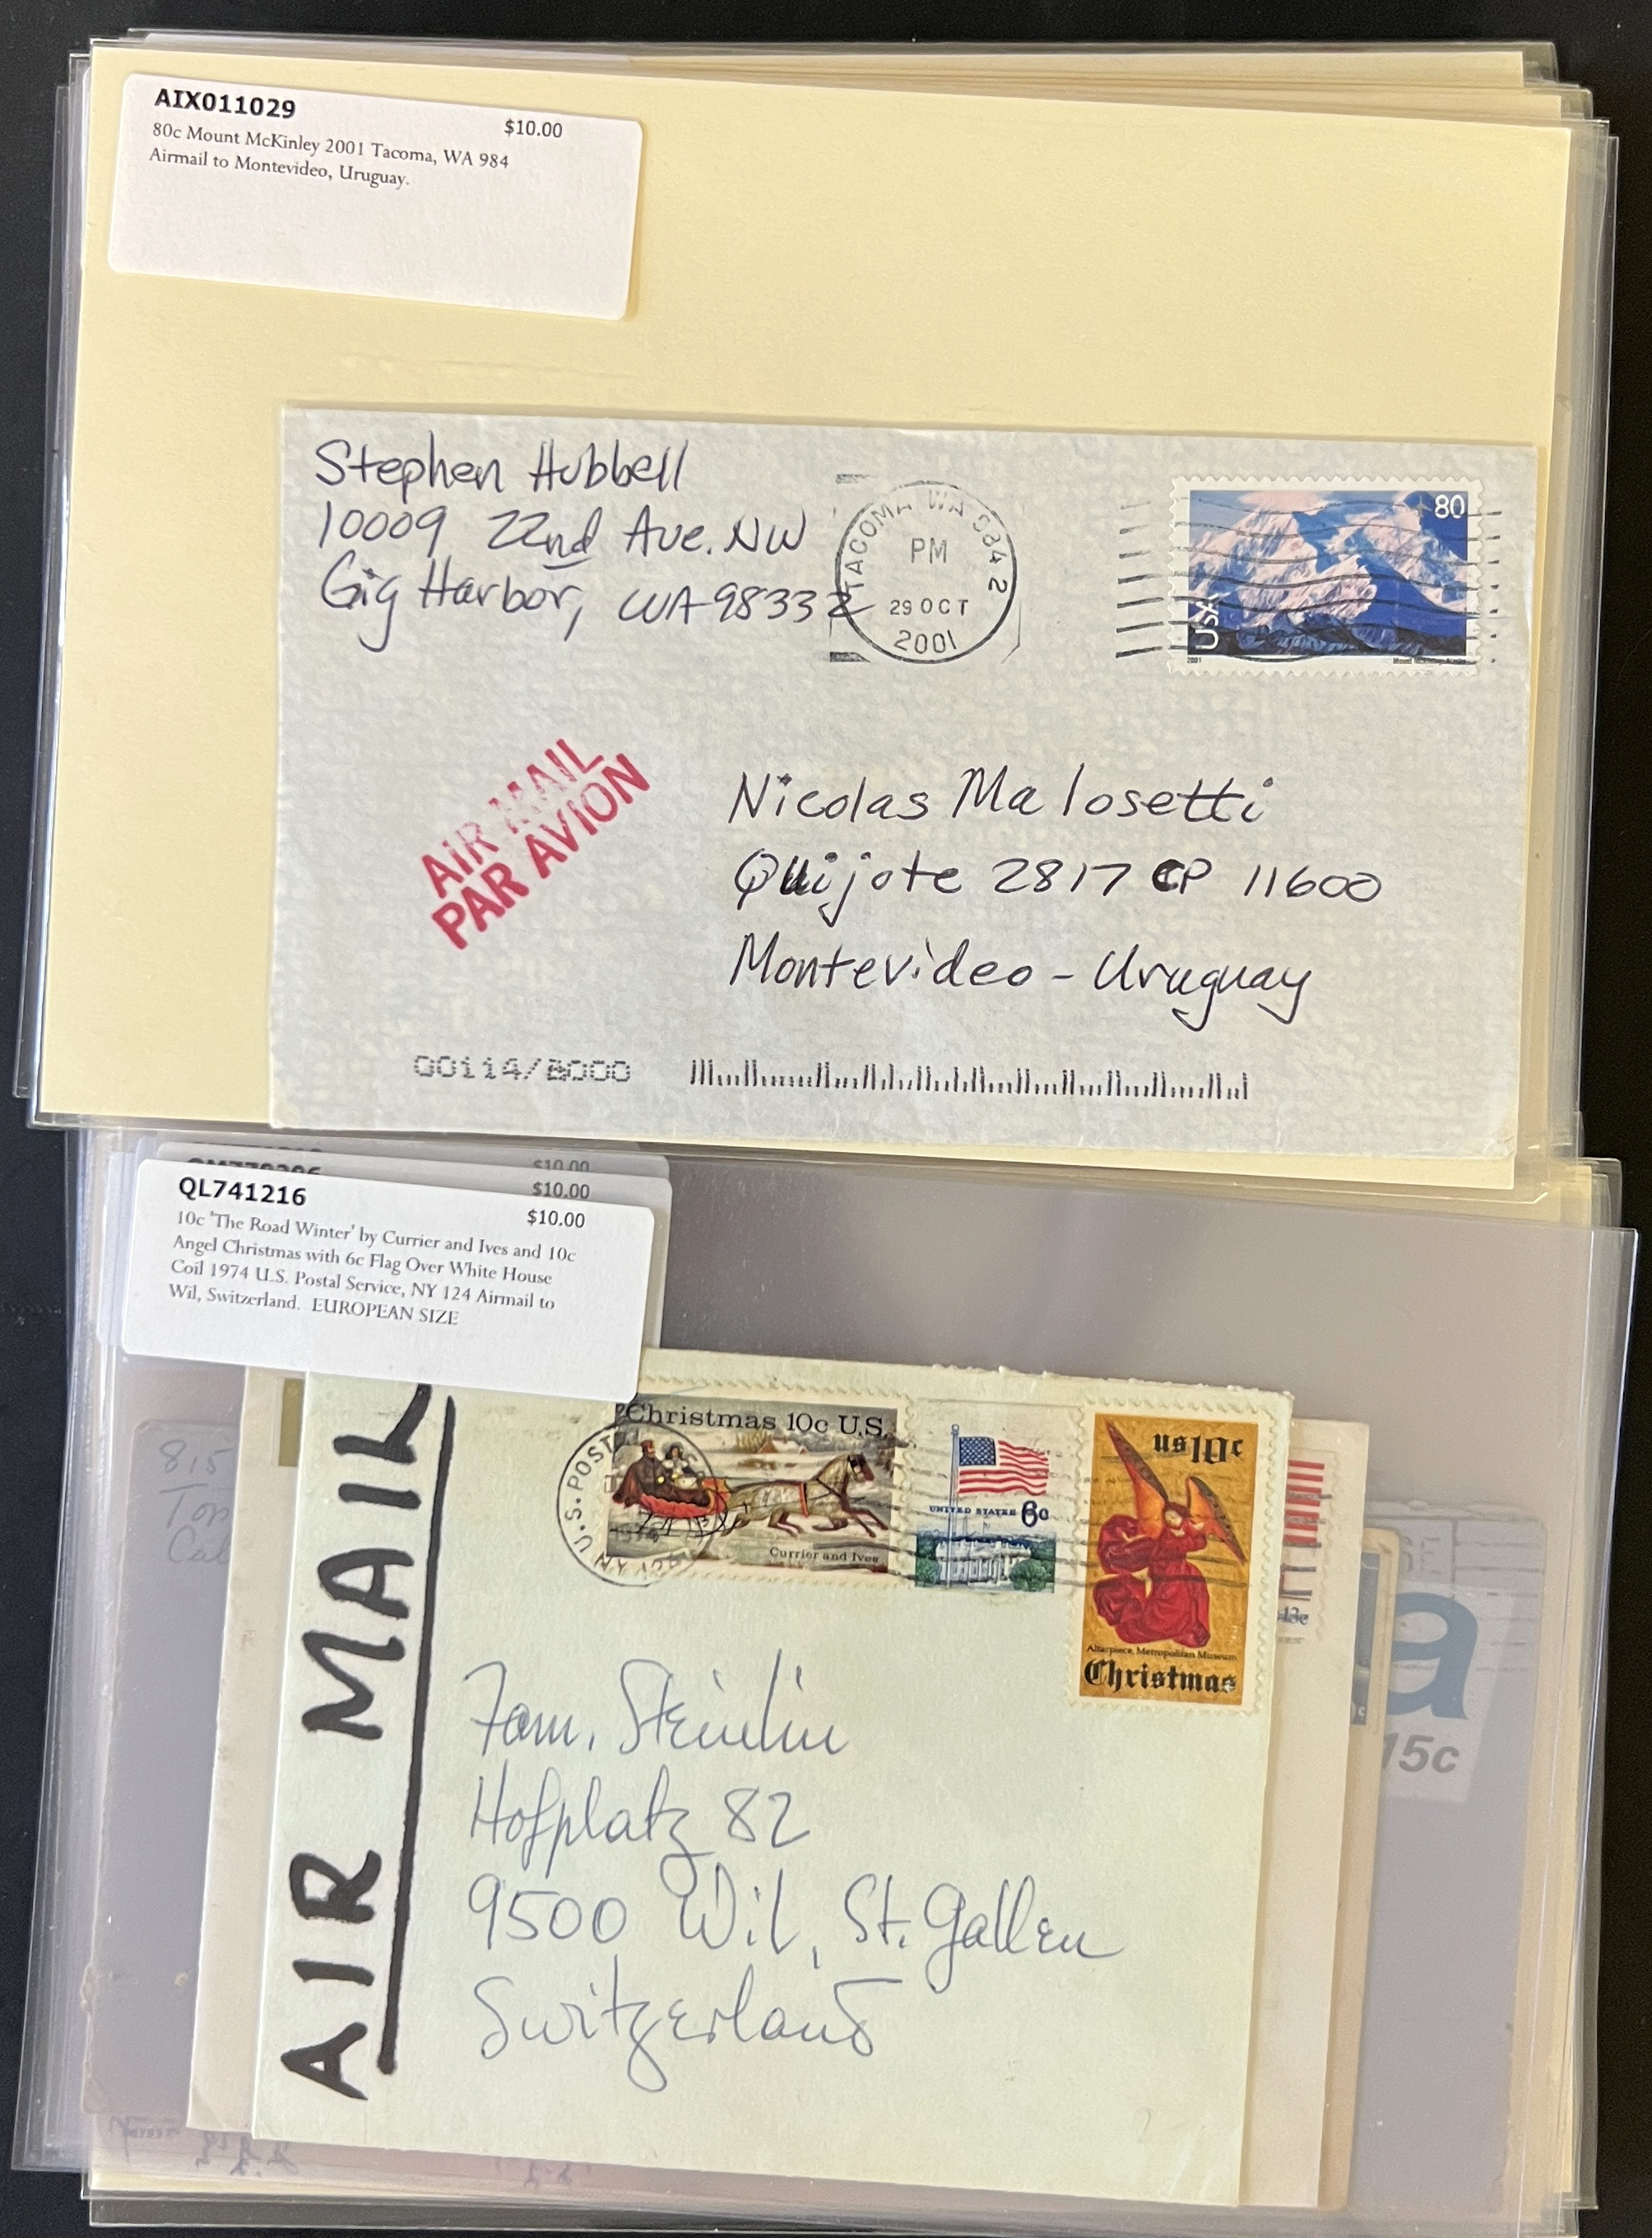 AIX011029
$10.00
80c Mount McKinley 2001 Tacoma, WA 984
Airmail to Montevideo, Uruguay.
Stephen Hubbell
10009 22nd Ave. NW
Gig Harbor, WA 98332
TACOMA WA 984 2
PM
29 OCT
2001
80
USA
2001
AIR MAIL
PAR AVION
Nicolas Malosetti
Quijote 2817 CP 11600
Montevideo - Uruguay
00114/8000
$10.00
$10.00
QL741216
$10.00
10c 'The Road Winter' by Currier and Ives and 10c
Angel Christmas with 6c Flag Over White House
Coil 1974 U.S. Postal Service, NY 124 Airmail to
Wil, Switzerland. EUROPEAN SIZE
AIR MAIL
Christmas 10c U.S.
Currier and Ives
U.S. POST
UNITED STATES 6c
US 10c
Altarpiece, Metropolitan Museum
Christmas
13c
a
15c
Fam. Steinlin
Hofplatz 82
9500 Wil, St. Gallen
Switzerland